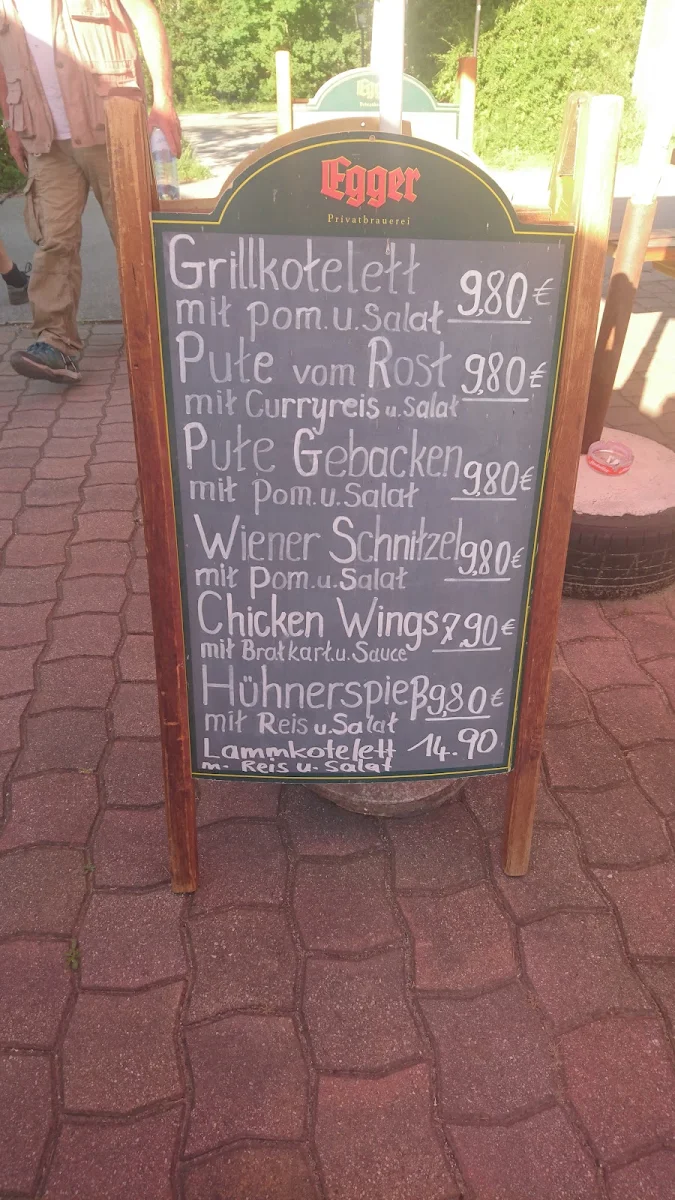 Egger
Privatbrauerei
Grillkotelett 9,80 €
mit Pom. u. Salat
Pute vom Rost 9,80 €
mit Curryreis u. Salat
Pute Gebacken 9,80 €
mit Pom. u. Salat
Wiener Schnitzel 9,80 €
mit Pom. u. Salat
Chicken Wings 7,90 €
mit Bratkart. u. Sauce
Hühnerspieß 9,80 €
mit Reis u. Salat
Lammkotelett 14.90
m. Reis u. Salat
Egger